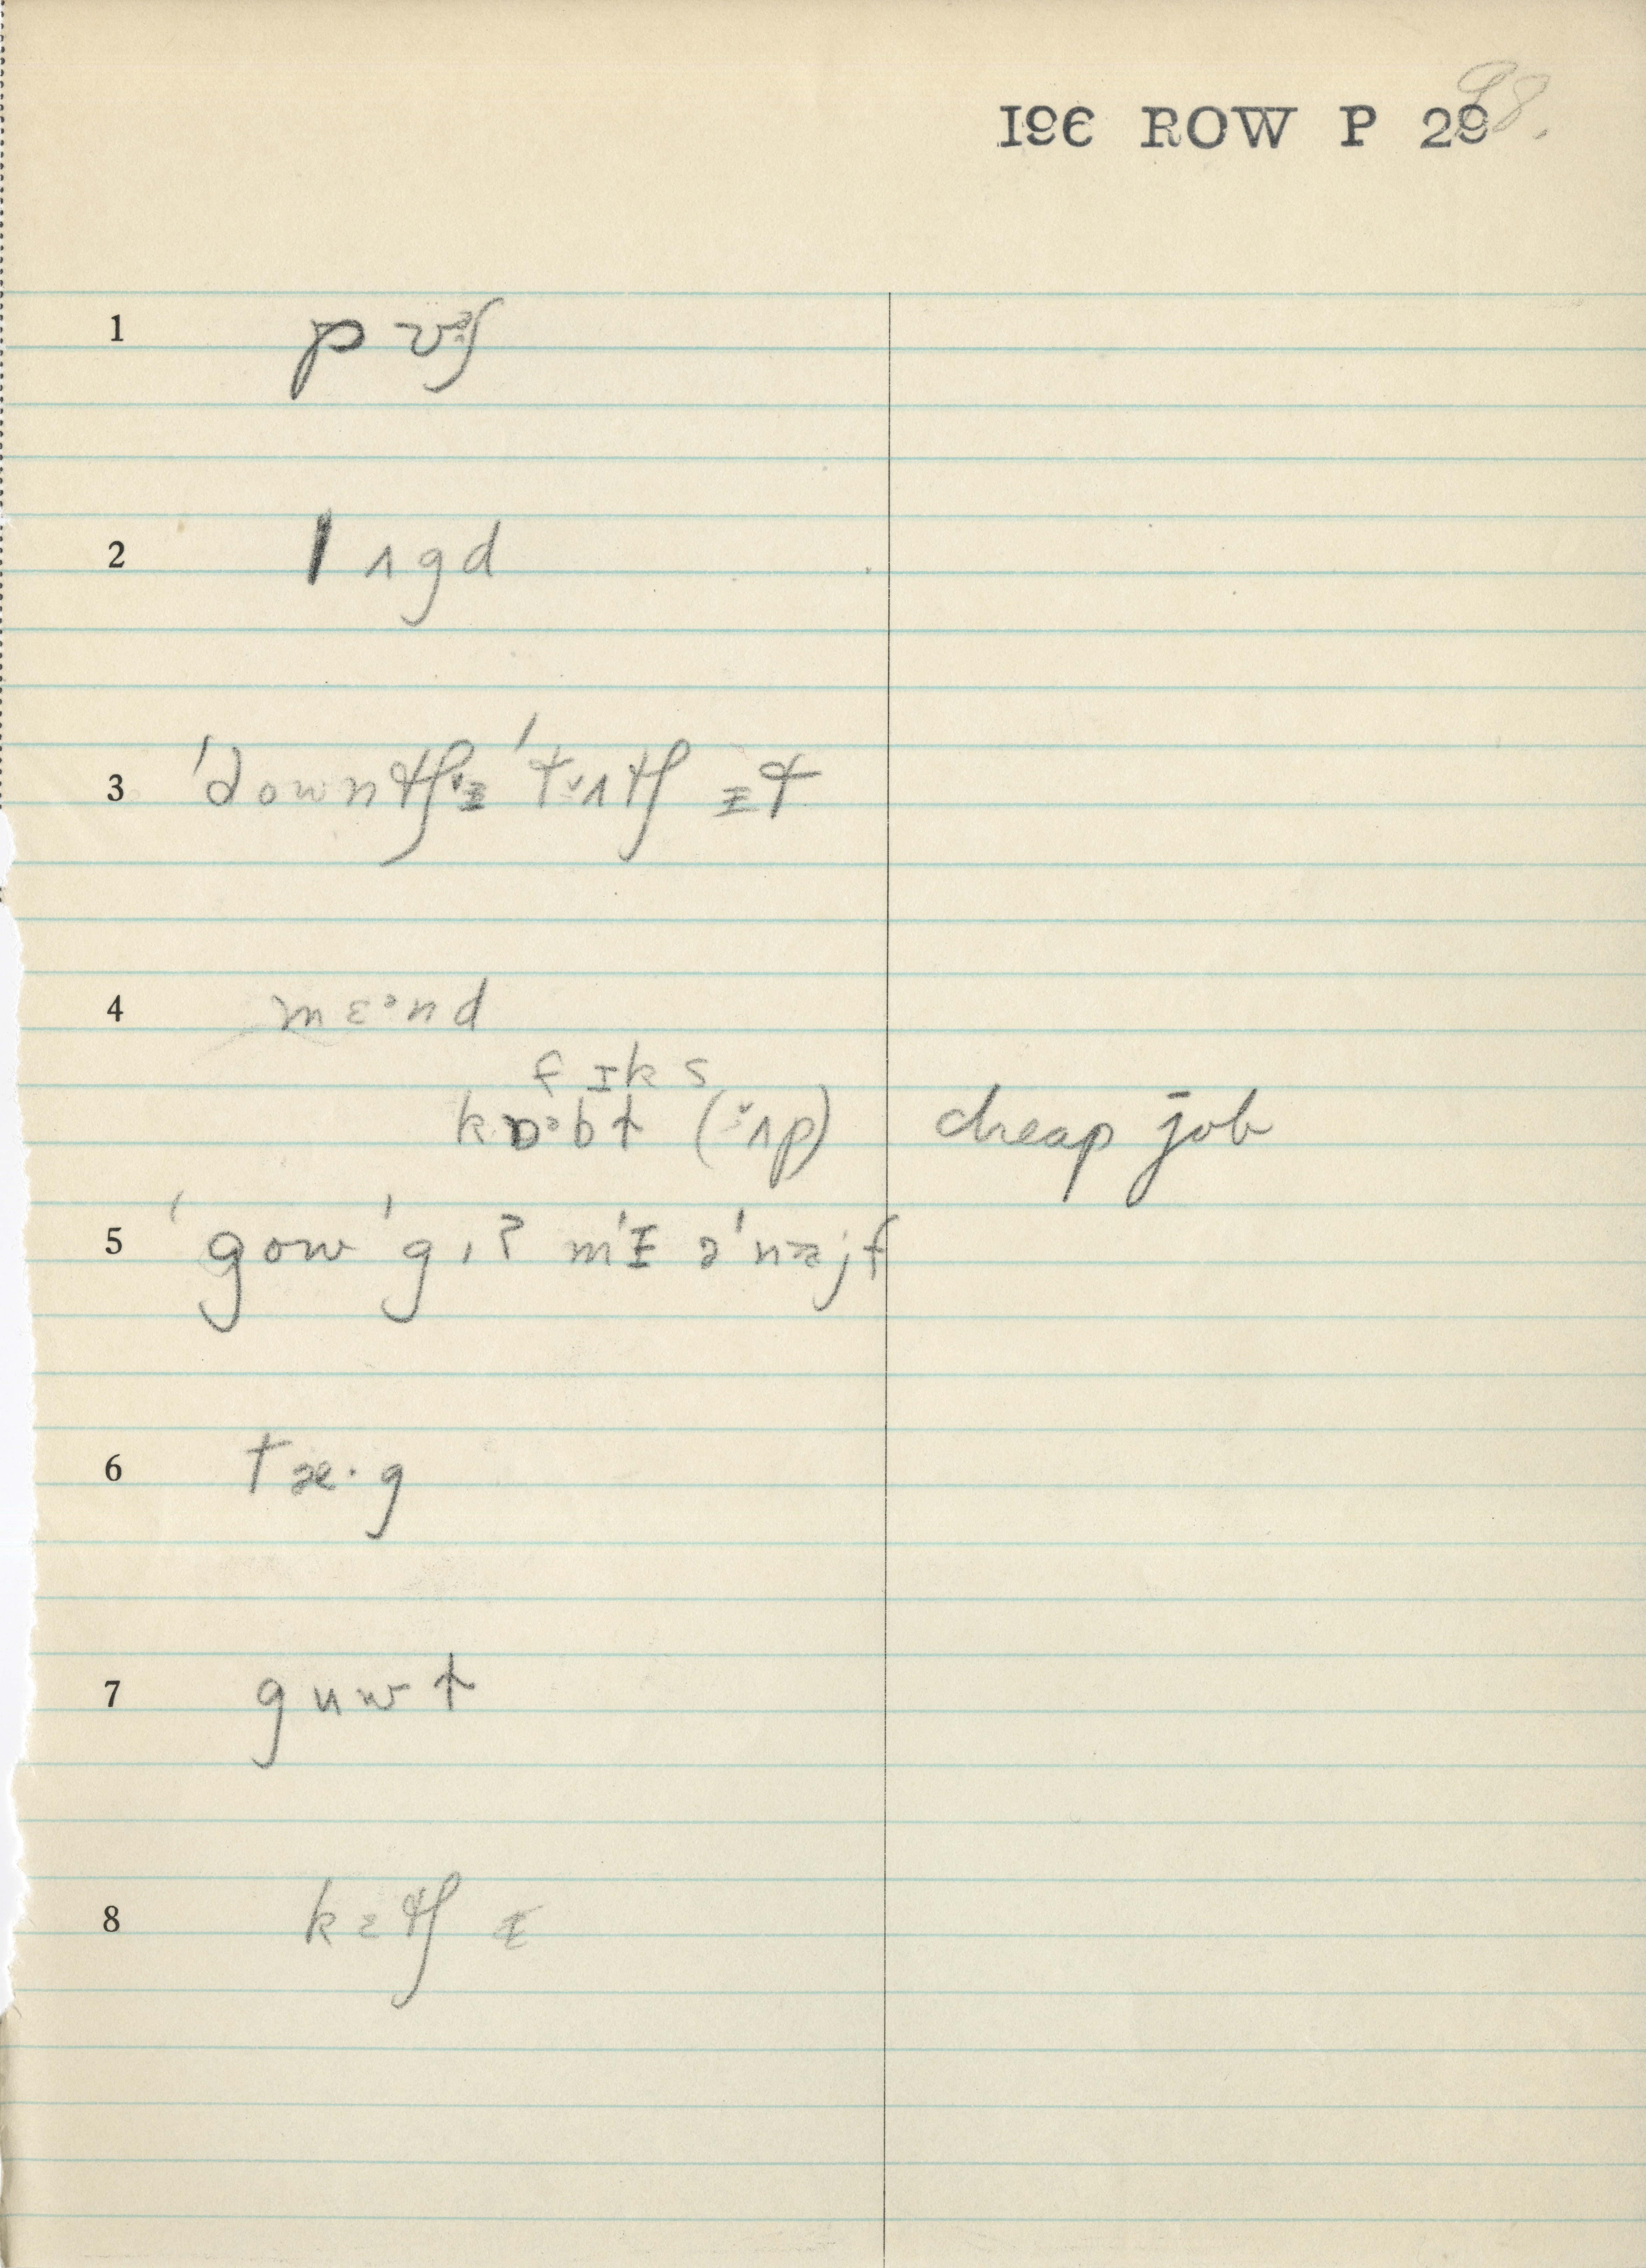 I9Є ROW P 29
98.
1 pʊᵊʃ
2 lʌgd
3 ˈdowntʃɪ̵ ˈtʌtʃ ɪ̵t
4 mɛᵊnd
fɪks
kɒᵊbɫ (ʌp) cheap job
5 ˈgow ˈgɪʔ mˈɪ̵ əˈnajf
6 tæ·g
7 guwɫ
8 kɛtʃ ɪ̵